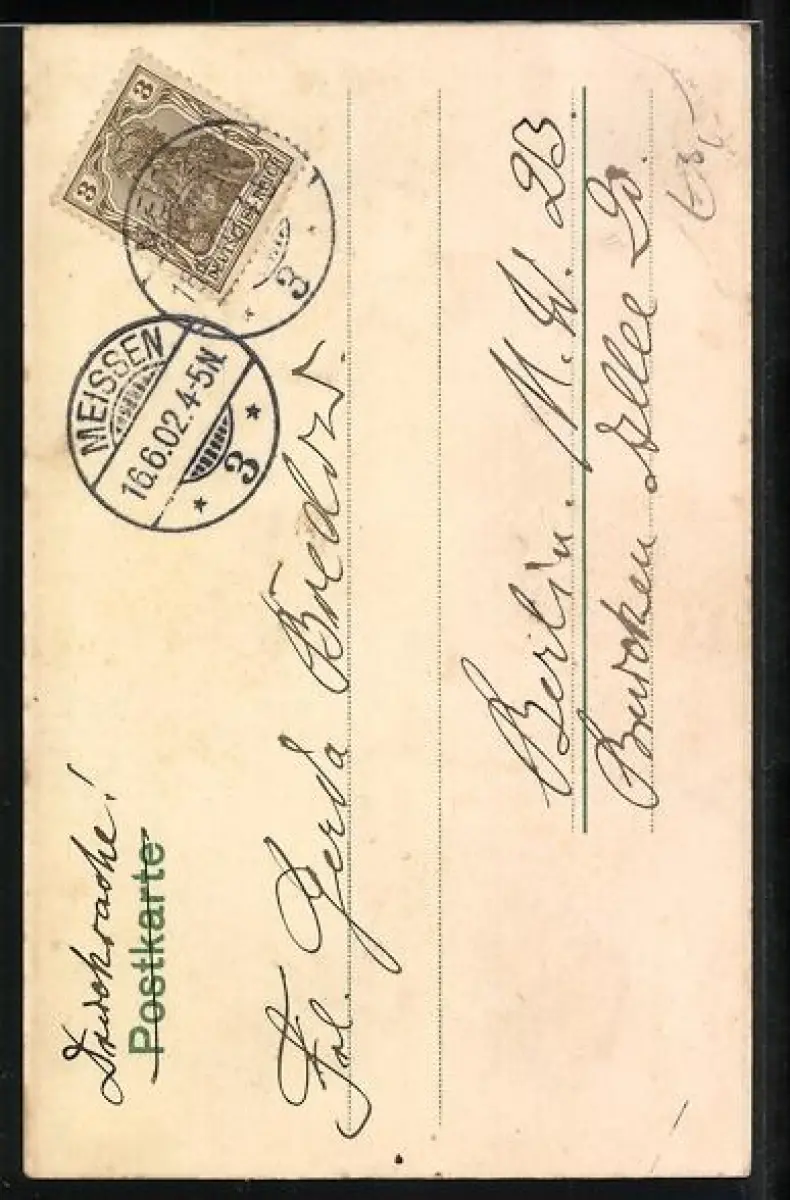 Drucksache!
Postkarte
3 3
DEUTSCHES REICH
3
MEISSEN
16.6.02. 4-5N.
3
Frl. Gerda Bredow.
Berlin. N.W. 23
Brücken Allee